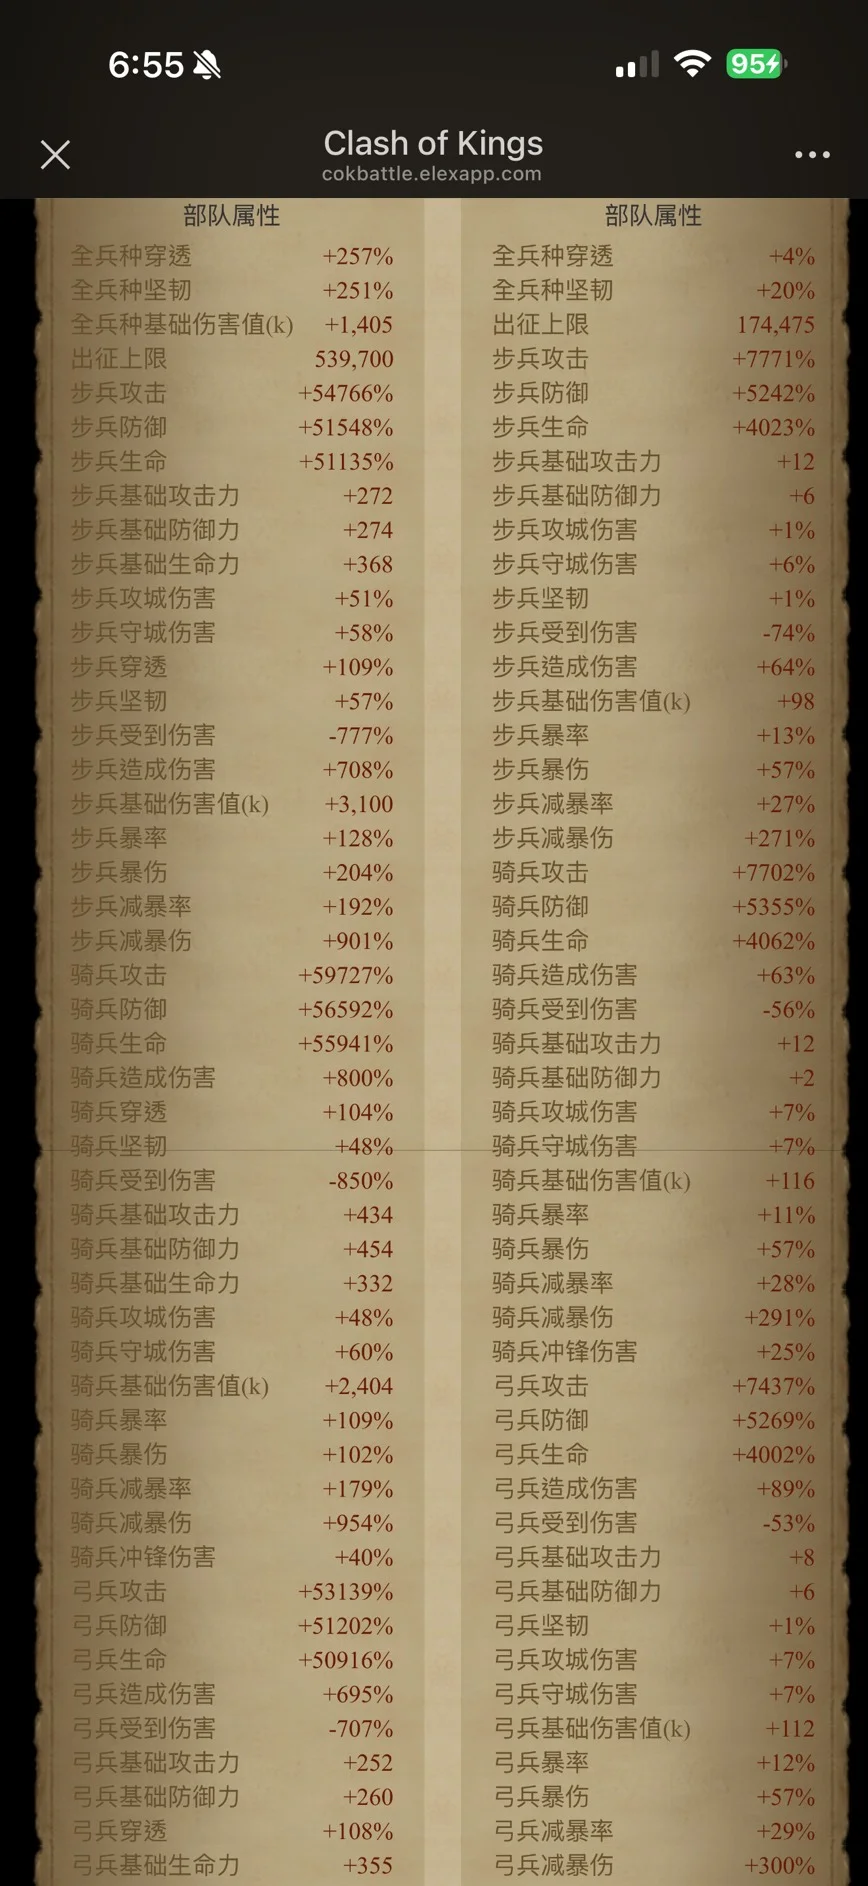 6:55
95
Clash of Kings
cokbattle.elexapp.com
部队属性 部队属性
全兵种穿透 +257% 全兵种穿透 +4%
全兵种坚韧 +251% 全兵种坚韧 +20%
全兵种基础伤害值(k) +1,405 出征上限 174,475
出征上限 539,700 步兵攻击 +7771%
步兵攻击 +54766% 步兵防御 +5242%
步兵防御 +51548% 步兵生命 +4023%
步兵生命 +51135% 步兵基础攻击力 +12
步兵基础攻击力 +272 步兵基础防御力 +6
步兵基础防御力 +274 步兵攻城伤害 +1%
步兵基础生命力 +368 步兵守城伤害 +6%
步兵攻城伤害 +51% 步兵坚韧 +1%
步兵守城伤害 +58% 步兵受到伤害 -74%
步兵穿透 +109% 步兵造成伤害 +64%
步兵坚韧 +57% 步兵基础伤害值(k) +98
步兵受到伤害 -777% 步兵暴率 +13%
步兵造成伤害 +708% 步兵暴伤 +57%
步兵基础伤害值(k) +3,100 步兵减暴率 +27%
步兵暴率 +128% 步兵减暴伤 +271%
步兵暴伤 +204% 骑兵攻击 +7702%
步兵减暴率 +192% 骑兵防御 +5355%
步兵减暴伤 +901% 骑兵生命 +4062%
骑兵攻击 +59727% 骑兵造成伤害 +63%
骑兵防御 +56592% 骑兵受到伤害 -56%
骑兵生命 +55941% 骑兵基础攻击力 +12
骑兵造成伤害 +800% 骑兵基础防御力 +2
骑兵穿透 +104% 骑兵攻城伤害 +7%
骑兵坚韧 +48% 骑兵守城伤害 +7%
骑兵受到伤害 -850% 骑兵基础伤害值(k) +116
骑兵基础攻击力 +434 骑兵暴率 +11%
骑兵基础防御力 +454 骑兵暴伤 +57%
骑兵基础生命力 +332 骑兵减暴率 +28%
骑兵攻城伤害 +48% 骑兵减暴伤 +291%
骑兵守城伤害 +60% 骑兵冲锋伤害 +25%
骑兵基础伤害值(k) +2,404 弓兵攻击 +7437%
骑兵暴率 +109% 弓兵防御 +5269%
骑兵暴伤 +102% 弓兵生命 +4002%
骑兵减暴率 +179% 弓兵造成伤害 +89%
骑兵减暴伤 +954% 弓兵受到伤害 -53%
骑兵冲锋伤害 +40% 弓兵基础攻击力 +8
弓兵攻击 +53139% 弓兵基础防御力 +6
弓兵防御 +51202% 弓兵坚韧 +1%
弓兵生命 +50916% 弓兵攻城伤害 +7%
弓兵造成伤害 +695% 弓兵守城伤害 +7%
弓兵受到伤害 -707% 弓兵基础伤害值(k) +112
弓兵基础攻击力 +252 弓兵暴率 +12%
弓兵基础防御力 +260 弓兵暴伤 +57%
弓兵穿透 +108% 弓兵减暴率 +29%
弓兵基础生命力 +355 弓兵减暴伤 +300%